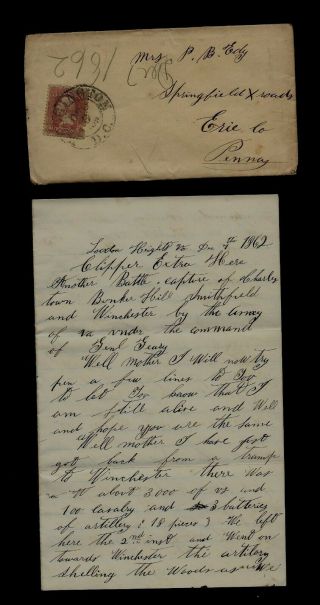 Dec 1862
Mrs P. B. Edy
Springfield X roads
Erie Co
Penna
D.C.
Loudon Heights Va Dec 7th 1862
Clipper Extra Here
Another Battle. capture of Charles
town Bunker Hill Smithfield
and Winchester by the army
of va vnder the command
of Genl Geary
Well mother I Will now try
pen a few lines to You
to let You know that I
am still alive and Well
and hope you are the same
Well mother I have just
got back from a tramp
to Winchester there was
about 3000 of us and
100 cavalry and 3 batteries
of artillery (18 pieces) We left
here the 2nd inst and Went on
towards Winchester the artilery
shelling the Woods as We